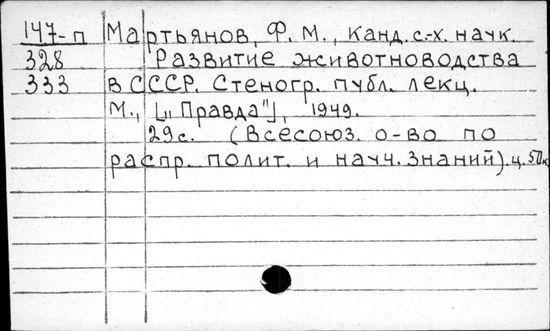 147-п Мартьянов, Ф. М., канд. с.-х. наук.
328 Развитие животноводства
333 в СССР. Стеногр. публ. лекц.
М., ["Правда"], 1949.
29с. (Всесоюз. о-во по
распр. полит. и научн. знаний). ц. 50к